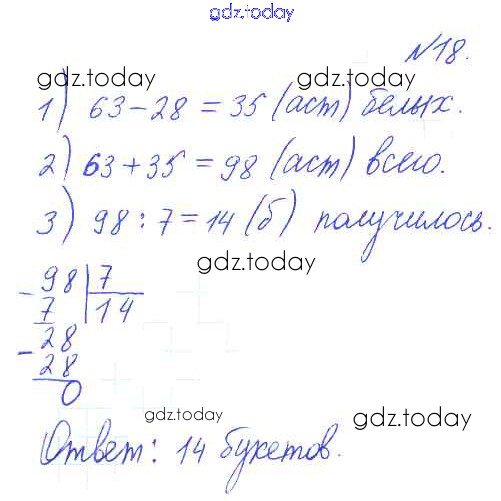 gdz.today
№18.
gdz.today gdz.today
1) 63-28 = 35 (аст) белых.
2) 63+35 = 98 (аст) всего.
gdz.today gdz.today
3) 98 : 7 = 14 (б) получилось.
gdz.today
- 98 | 7
7 14
- 28
28
0
gdz.today gdz.today
Ответ: 14 букетов.